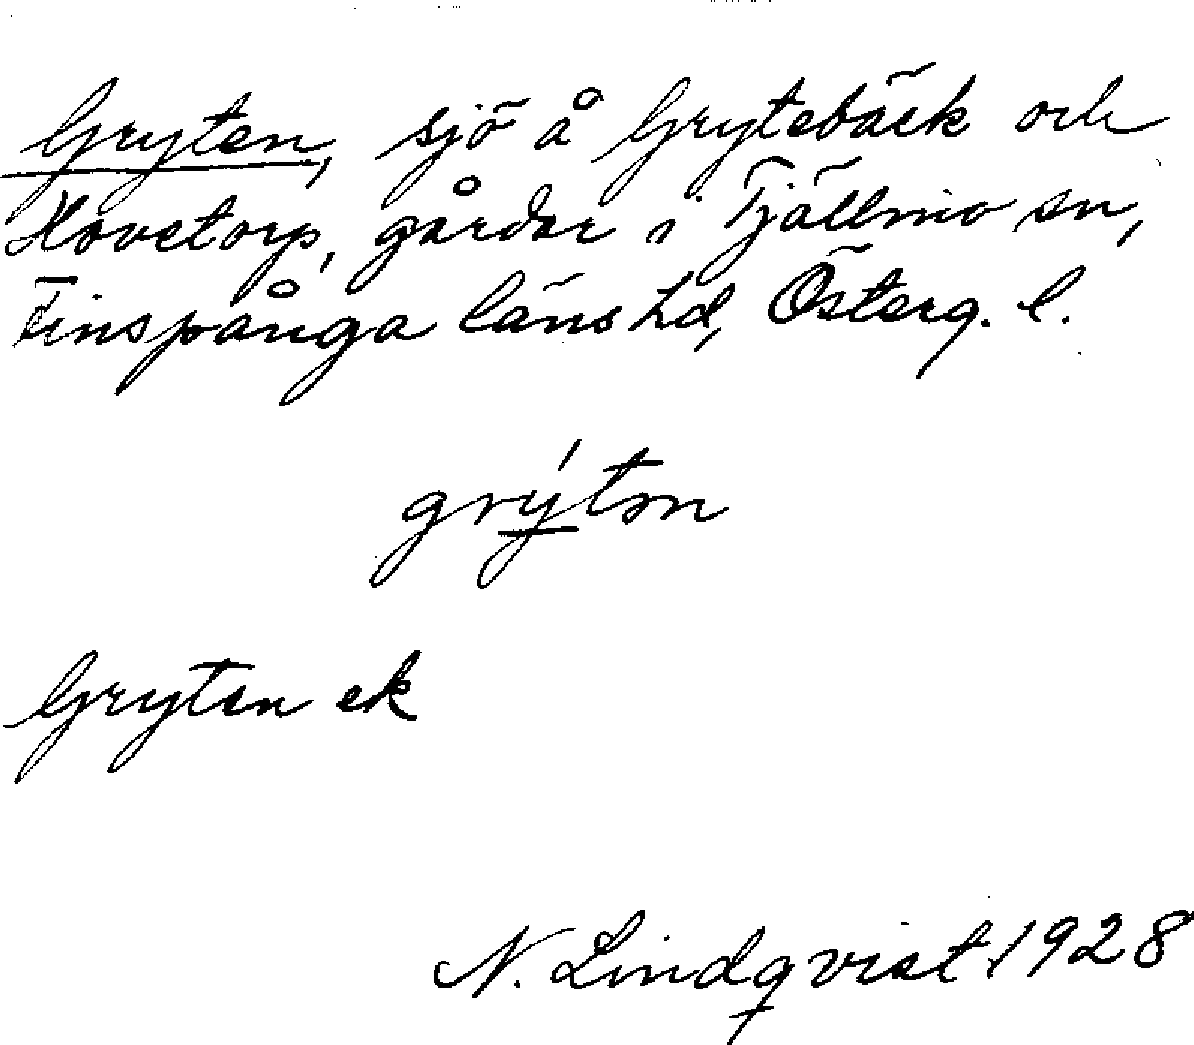 Gryten, sjö å Grytebäck och
Hovetorp, gårdar i Tjällmo sn,
Finspånga läns hd, Österg. l.
grý̱tən
Gryten ek
N. Lindqvist 1928